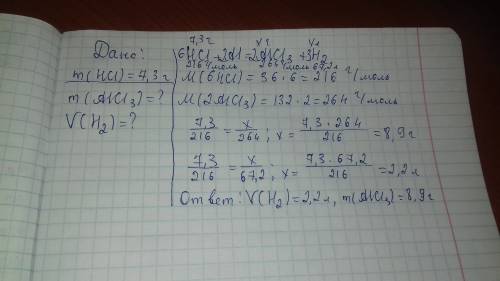 Дано:
m(HCl)=7,3г
m(AlCl₃)=?
V(H₂)=?
7,3г x г x л
6HCl+2Al=2AlCl₃+3H₂
216г/моль 264г/моль 67,2л
M(6HCl)=36·6=216 г/моль
M(2AlCl₃)=132·2=264 г/моль
7,3/216 = x/264; x= 7,3·264/216 =8,9г
7,3/216 = x/67,2; x= 7,3·67,2/216 =2,2л
Ответ: V(H₂)=2,2л, m(AlCl₃)=8,9г